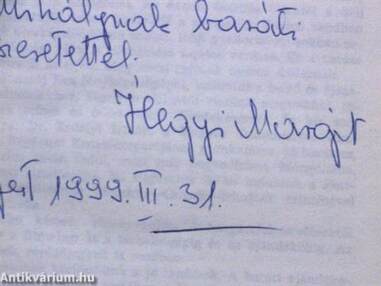 Mihálynak baráti
szeretettel.
Hegyi Margit
1999. III. 31.
Antikvárium.hu